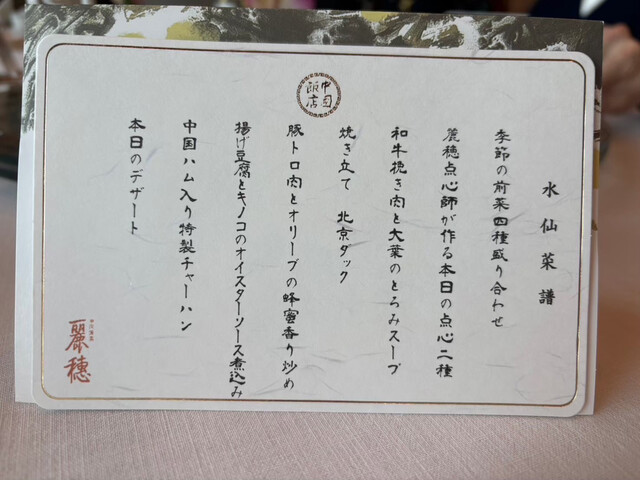 水仙菜譜
季節の前菜四種盛り合わせ
麗穂点心師が作る本日の点心二種
和牛挽き肉と大葉のとろみスープ
焼き立て 北京ダック
豚トロ肉とオリーブの蜂蜜香り炒め
揚げ豆腐とキノコのオイスターソース煮込み
中国ハム入り特製チャーハン
本日のデザート
中国飯店
麗穂